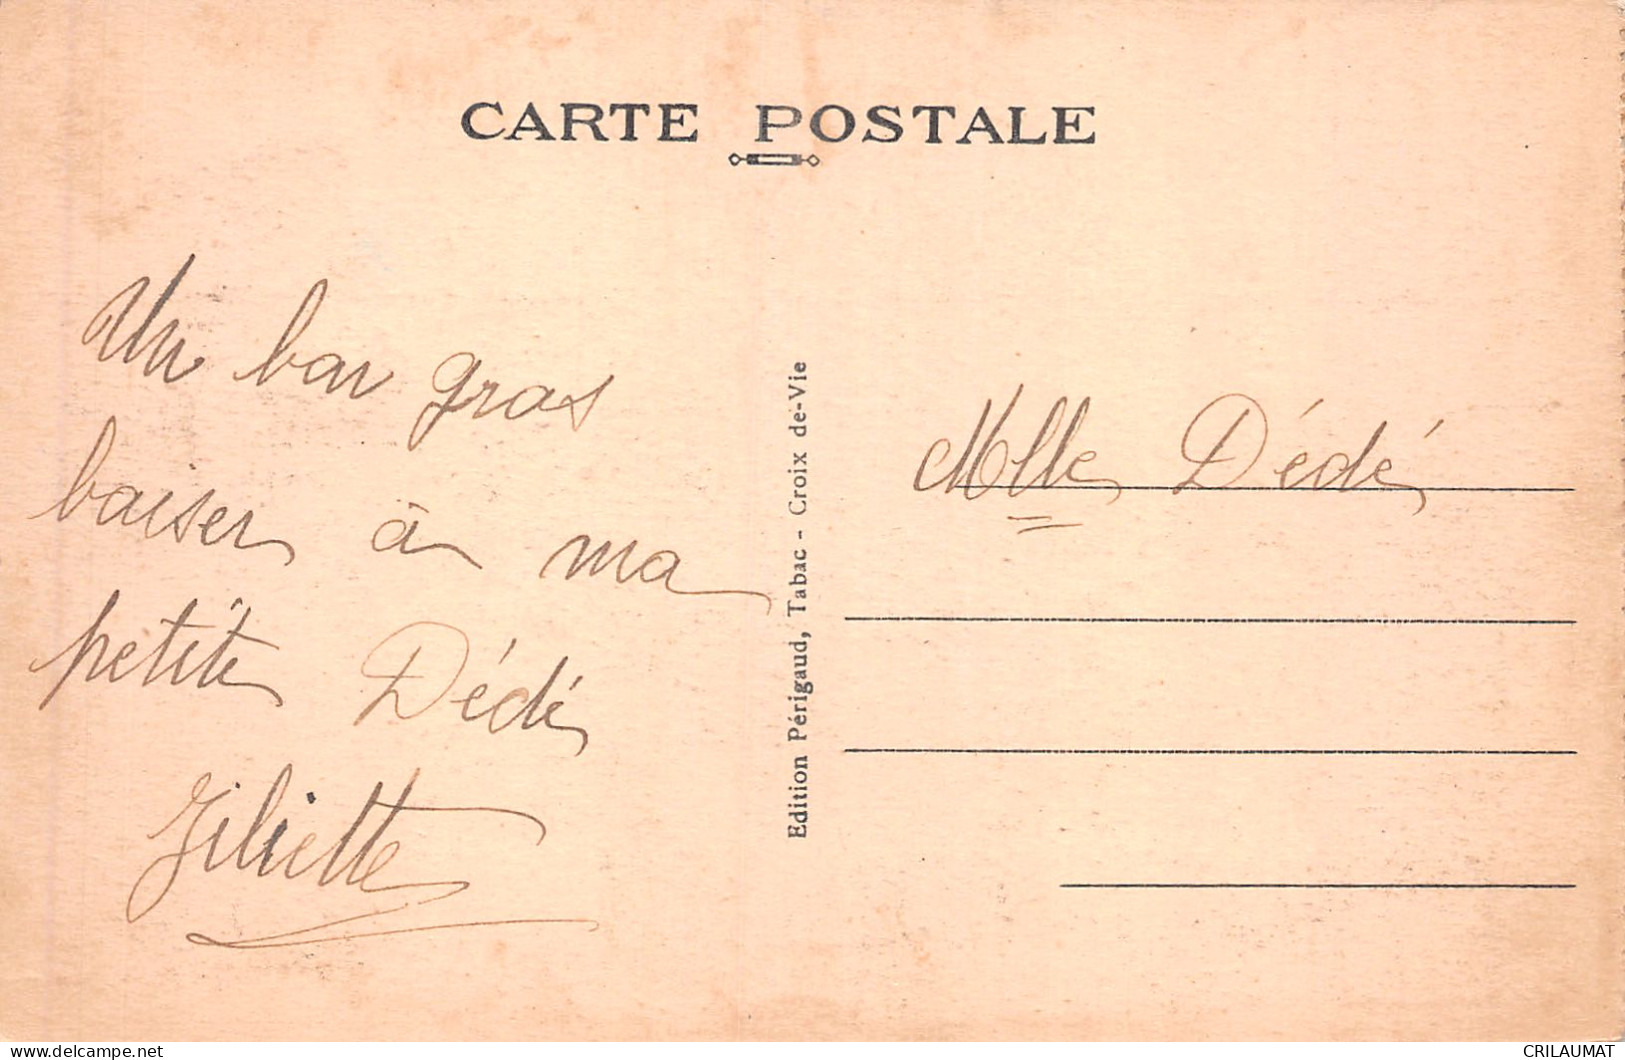 CARTE POSTALE
Un bon gros
baiser à ma
petite Dédé
Edition Périgaud, Tabac - Croix de-Vie
Mlle Dédé
CRILAUMAT